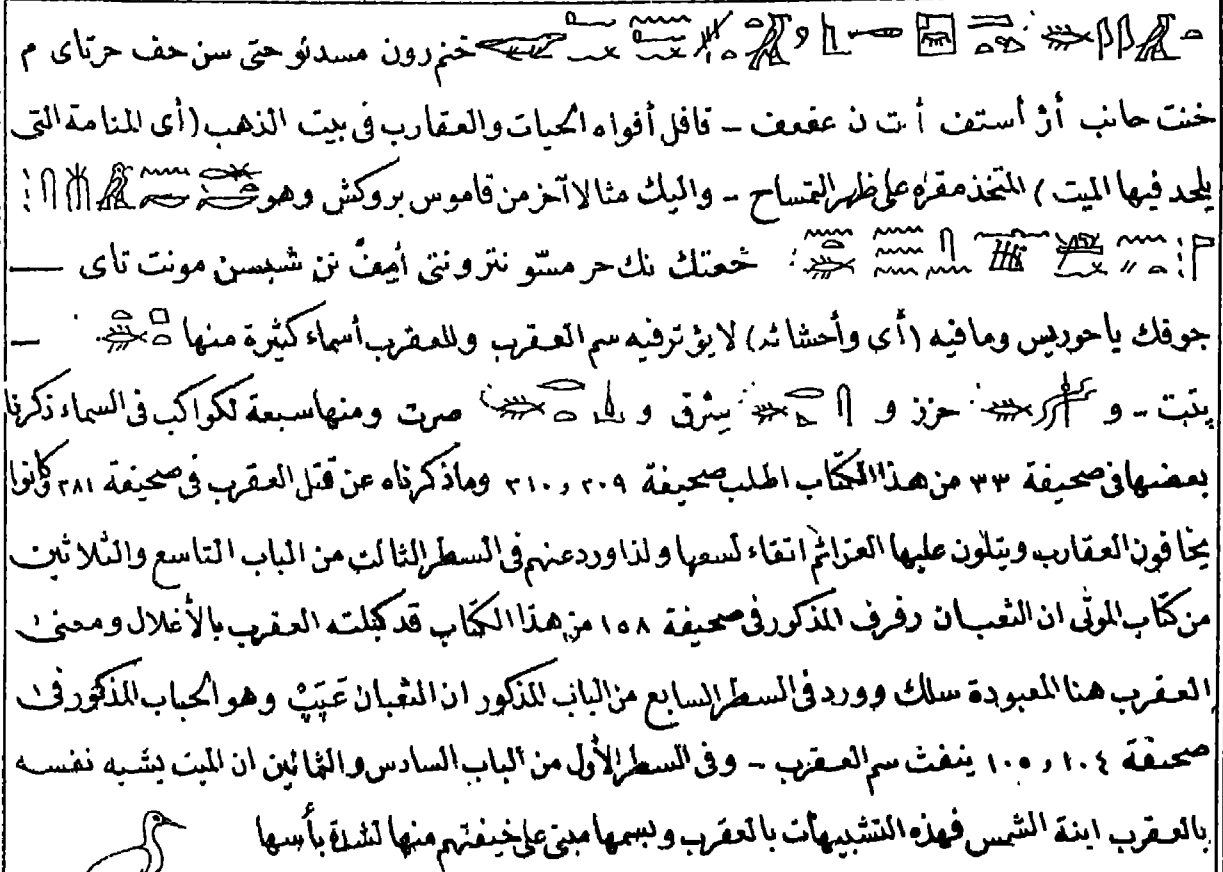 خنم رون مسدئو حتى سن حف حرتاى م
خنت حانب أژ أستف أ.ت ن عقعف - قافل أفواه الحيات والعقارب فى بيت الذهب (أى المنامة التى
يلحد فيها الميت) المتخذ مقره على ظهر التمساح - واليك مثالا آخر من قاموس بروكش وهو
خعتك نك حر مستو نترو نتى أيمف نن شبسن مونت تاى —
جوفك ياحوريس ومافيه (أى وأحشائه) لايؤثر فيه سم العقرب وللعقرب أسماء كثيرة منها —
پتت - و حزز و سرق و صرت ومنها سبعة لكواكب فى السماء ذكرنا
بعضها فى صحيفة ٣٣ من هذا الكتاب اطلب صحيفة ٢٠٩ و ٣١٠ وماذكرناه عن قتل العقرب فى صحيفة ٢٨١ وكانوا
يخافون العقارب ويتلون عليها العزائم اتقاء لسعها ولذا ورد عنهم فى السطر الثالث من الباب التاسع والثلاثين
من كتاب الموتى ان الثعبان رفرف المذكور فى صحيفة ١٥٨ من هذا الكتاب قد كبلته العقرب بالأغلال ومعنى
العقرب هنا المعبودة سلك وورد فى السطر السابع من الباب المذكور ان الثعبان عَبَبْ وهو الحباب المذكور فى
صحيفة ١٠٤ و ١٠٥ ينفث سم العقرب - وفى السطر الأول من الباب السادس والثمانين ان الميت يشبه نفسه
بالعقرب ابنة الشمس فهذه التشبيهات بالعقرب وبسمها مبنى على خيفتهم منها لشدة بأسها